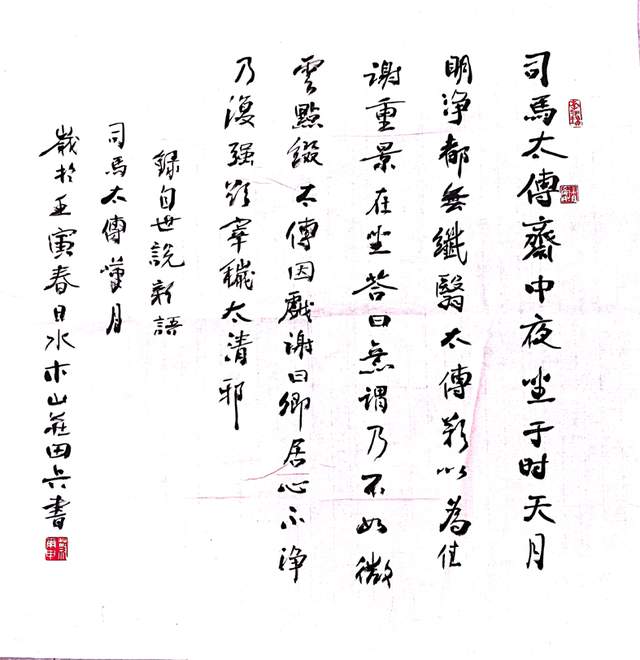 司馬太傅齋中夜坐于时天月
明浄都無纖翳太傅歎以為佳
謝重景在坐荅曰意謂乃不如微
雲點綴太傅因戲謝曰卿居心不浄
乃復强欲滓穢太清邪
録自世說新語
司馬太傅賞月
嵗於壬寅春日水木山莊田兵書